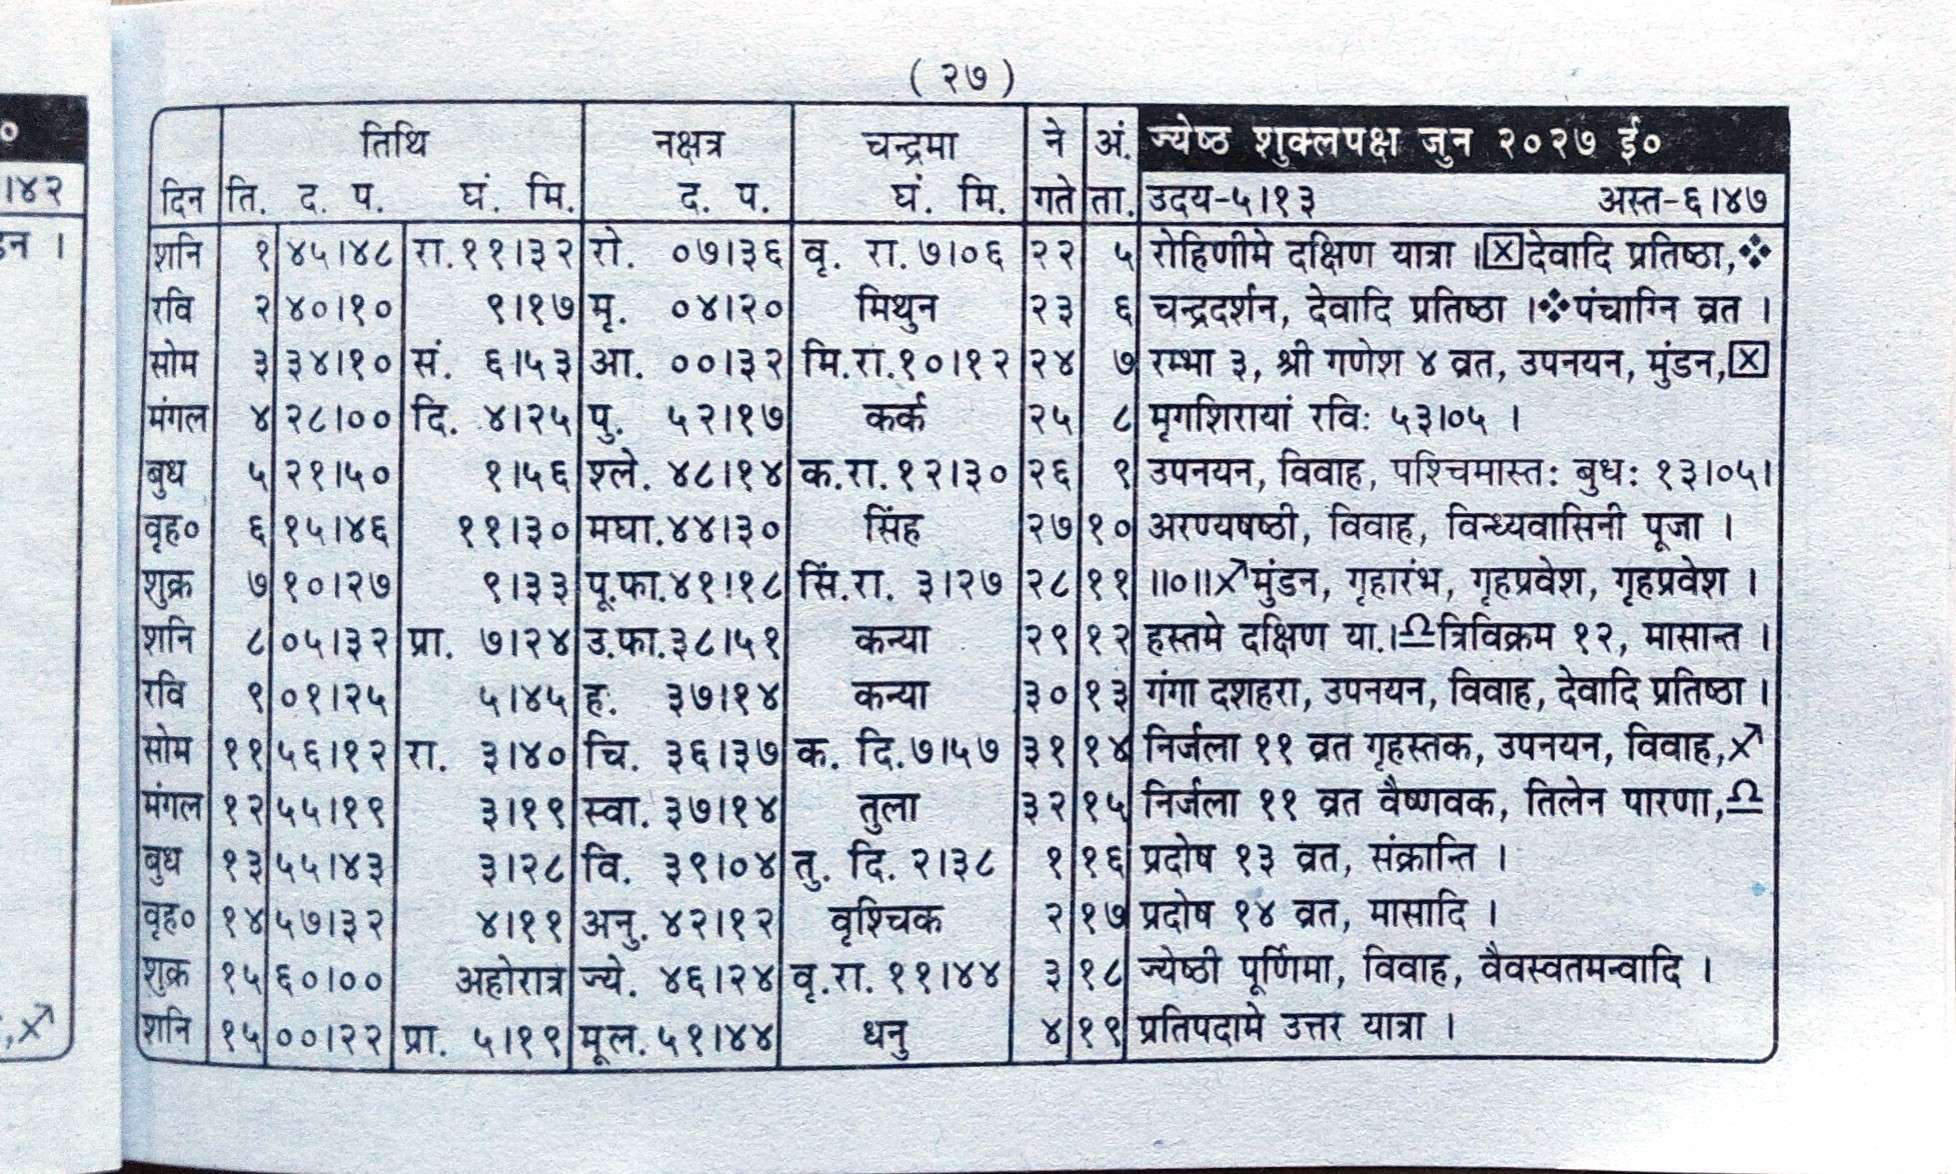 ०
।४२
( २७ )
तिथि नक्षत्र चन्द्रमा ने अं. ज्येष्ठ शुक्लपक्ष जुन २०२७ ई०
दिन ति. द. प. घं. मि. द. प. घं. मि. गते ता. उदय-५।१३ अस्त-६।४७
शनि १ ४५।४८ रा.११।३२ रो. ०७।३६ वृ. रा. ७।०६ २२ ५ रोहिणीमे दक्षिण यात्रा ।☒देवादि प्रतिष्ठा,❖
रवि २ ४०।१० ९।१७ मृ. ०४।२० मिथुन २३ ६ चन्द्रदर्शन, देवादि प्रतिष्ठा ।❖पंचाग्नि व्रत ।
सोम ३ ३४।१० सं. ६।५३ आ. ००।३२ मि.रा.१०।१२ २४ ७ रम्भा ३, श्री गणेश ४ व्रत, उपनयन, मुंडन,☒
मंगल ४ २८।०० दि. ४।२५ पु. ५२।१७ कर्क २५ ८ मृगशिरायां रविः ५३।०५ ।
बुध ५ २१।५० १।५६ श्ले. ४८।१४ क.रा.१२।३० २६ ९ उपनयन, विवाह, पश्चिमास्तः बुधः १३।०५।
वृह० ६ १५।४६ ११।३० मघा.४४।३० सिंह २७ १० अरण्यषष्ठी, विवाह, विन्ध्यवासिनी पूजा ।
शुक्र ७ १०।२७ ९।३३ पू.फा.४१।१८ सिं.रा. ३।२७ २८ ११ ॥०॥♐मुंडन, गृहारंभ, गृहप्रवेश, गृहप्रवेश ।
शनि ८ ०५।३२ प्रा. ७।२४ उ.फा.३८।५१ कन्या २९ १२ हस्तमे दक्षिण या.।♎त्रिविक्रम १२, मासान्त ।
रवि ९ ०१।२५ ५।४५ ह. ३७।१४ कन्या ३० १३ गंगा दशहरा, उपनयन, विवाह, देवादि प्रतिष्ठा ।
सोम ११ ५६।१२ रा. ३।४० चि. ३६।३७ क. दि.७।५७ ३१ १४ निर्जला ११ व्रत गृहस्तक, उपनयन, विवाह,♐
मंगल १२ ५५।१९ ३।१९ स्वा. ३७।१४ तुला ३२ १५ निर्जला ११ व्रत वैष्णवक, तिलेन पारणा,♎
बुध १३ ५५।४३ ३।२८ वि. ३९।०४ तु. दि. २।३८ १ १६ प्रदोष १३ व्रत, संक्रान्ति ।
वृह० १४ ५७।३२ ४।११ अनु. ४२।१२ वृश्चिक २ १७ प्रदोष १४ व्रत, मासादि ।
शुक्र १५ ६०।०० अहोरात्र ज्ये. ४६।२४ वृ.रा. ११।४४ ३ १८ ज्येष्ठी पूर्णिमा, विवाह, वैवस्वतमन्वादि ।
शनि १५ ००।२२ प्रा. ५।१९ मूल. ५१।४४ धनु ४ १९ प्रतिपदामे उत्तर यात्रा ।
,♐